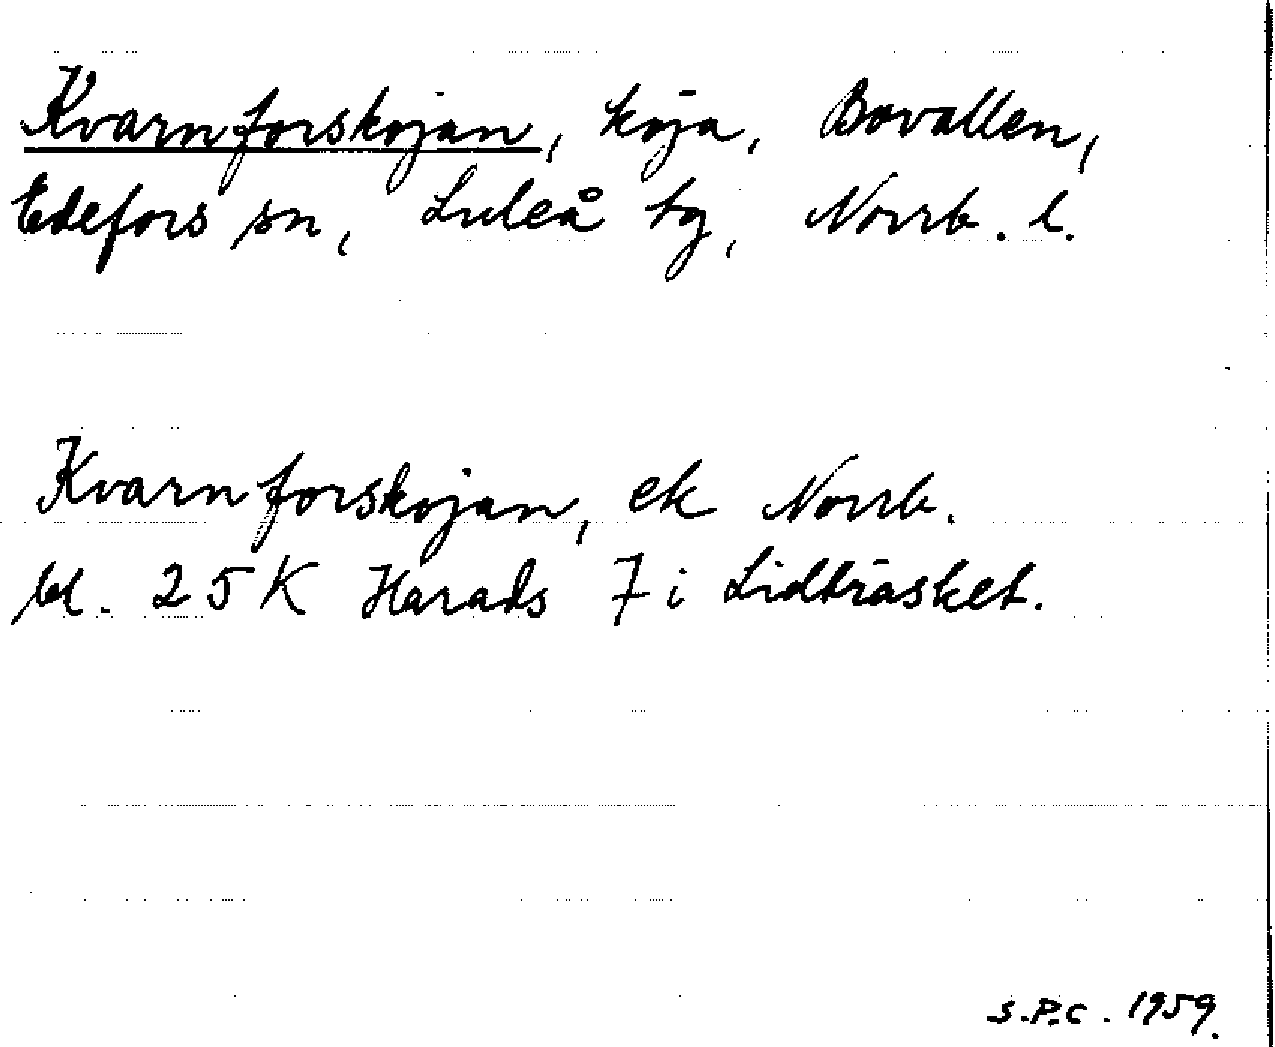 Kvarnforskojan, koja, Bovallen,
Edefors sn, Luleå tg, Norrb. l.
Kvarnforskojan, ek Norrb.
bl. 25K Harads 7i Lidträsket.
S.P.C. 1959.